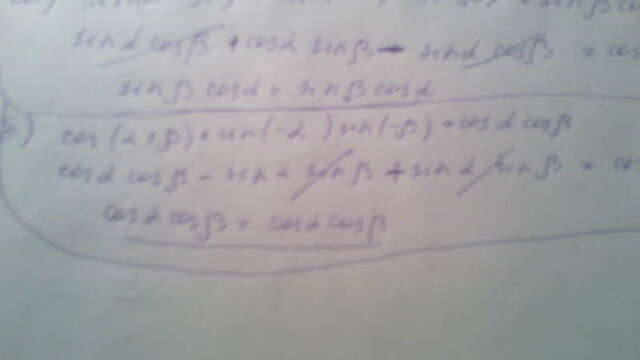 sinα cosβ + cosα sinβ - sinα cosβ = cos
sinβ cosα = sinβ cosα
cos(α+β)+sin(-α)sin(-β)=cosα cosβ
cosα cosβ - sinα sinβ + sinα sinβ = co
cosα cosβ = cosα cosβ